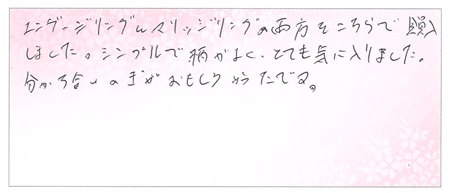 エンゲージリングとマリッジリングの両方をこちらで購入
しました。シンプルで柄がよく、とても気に入りました。
分かち合いの手がおもしろかったです。